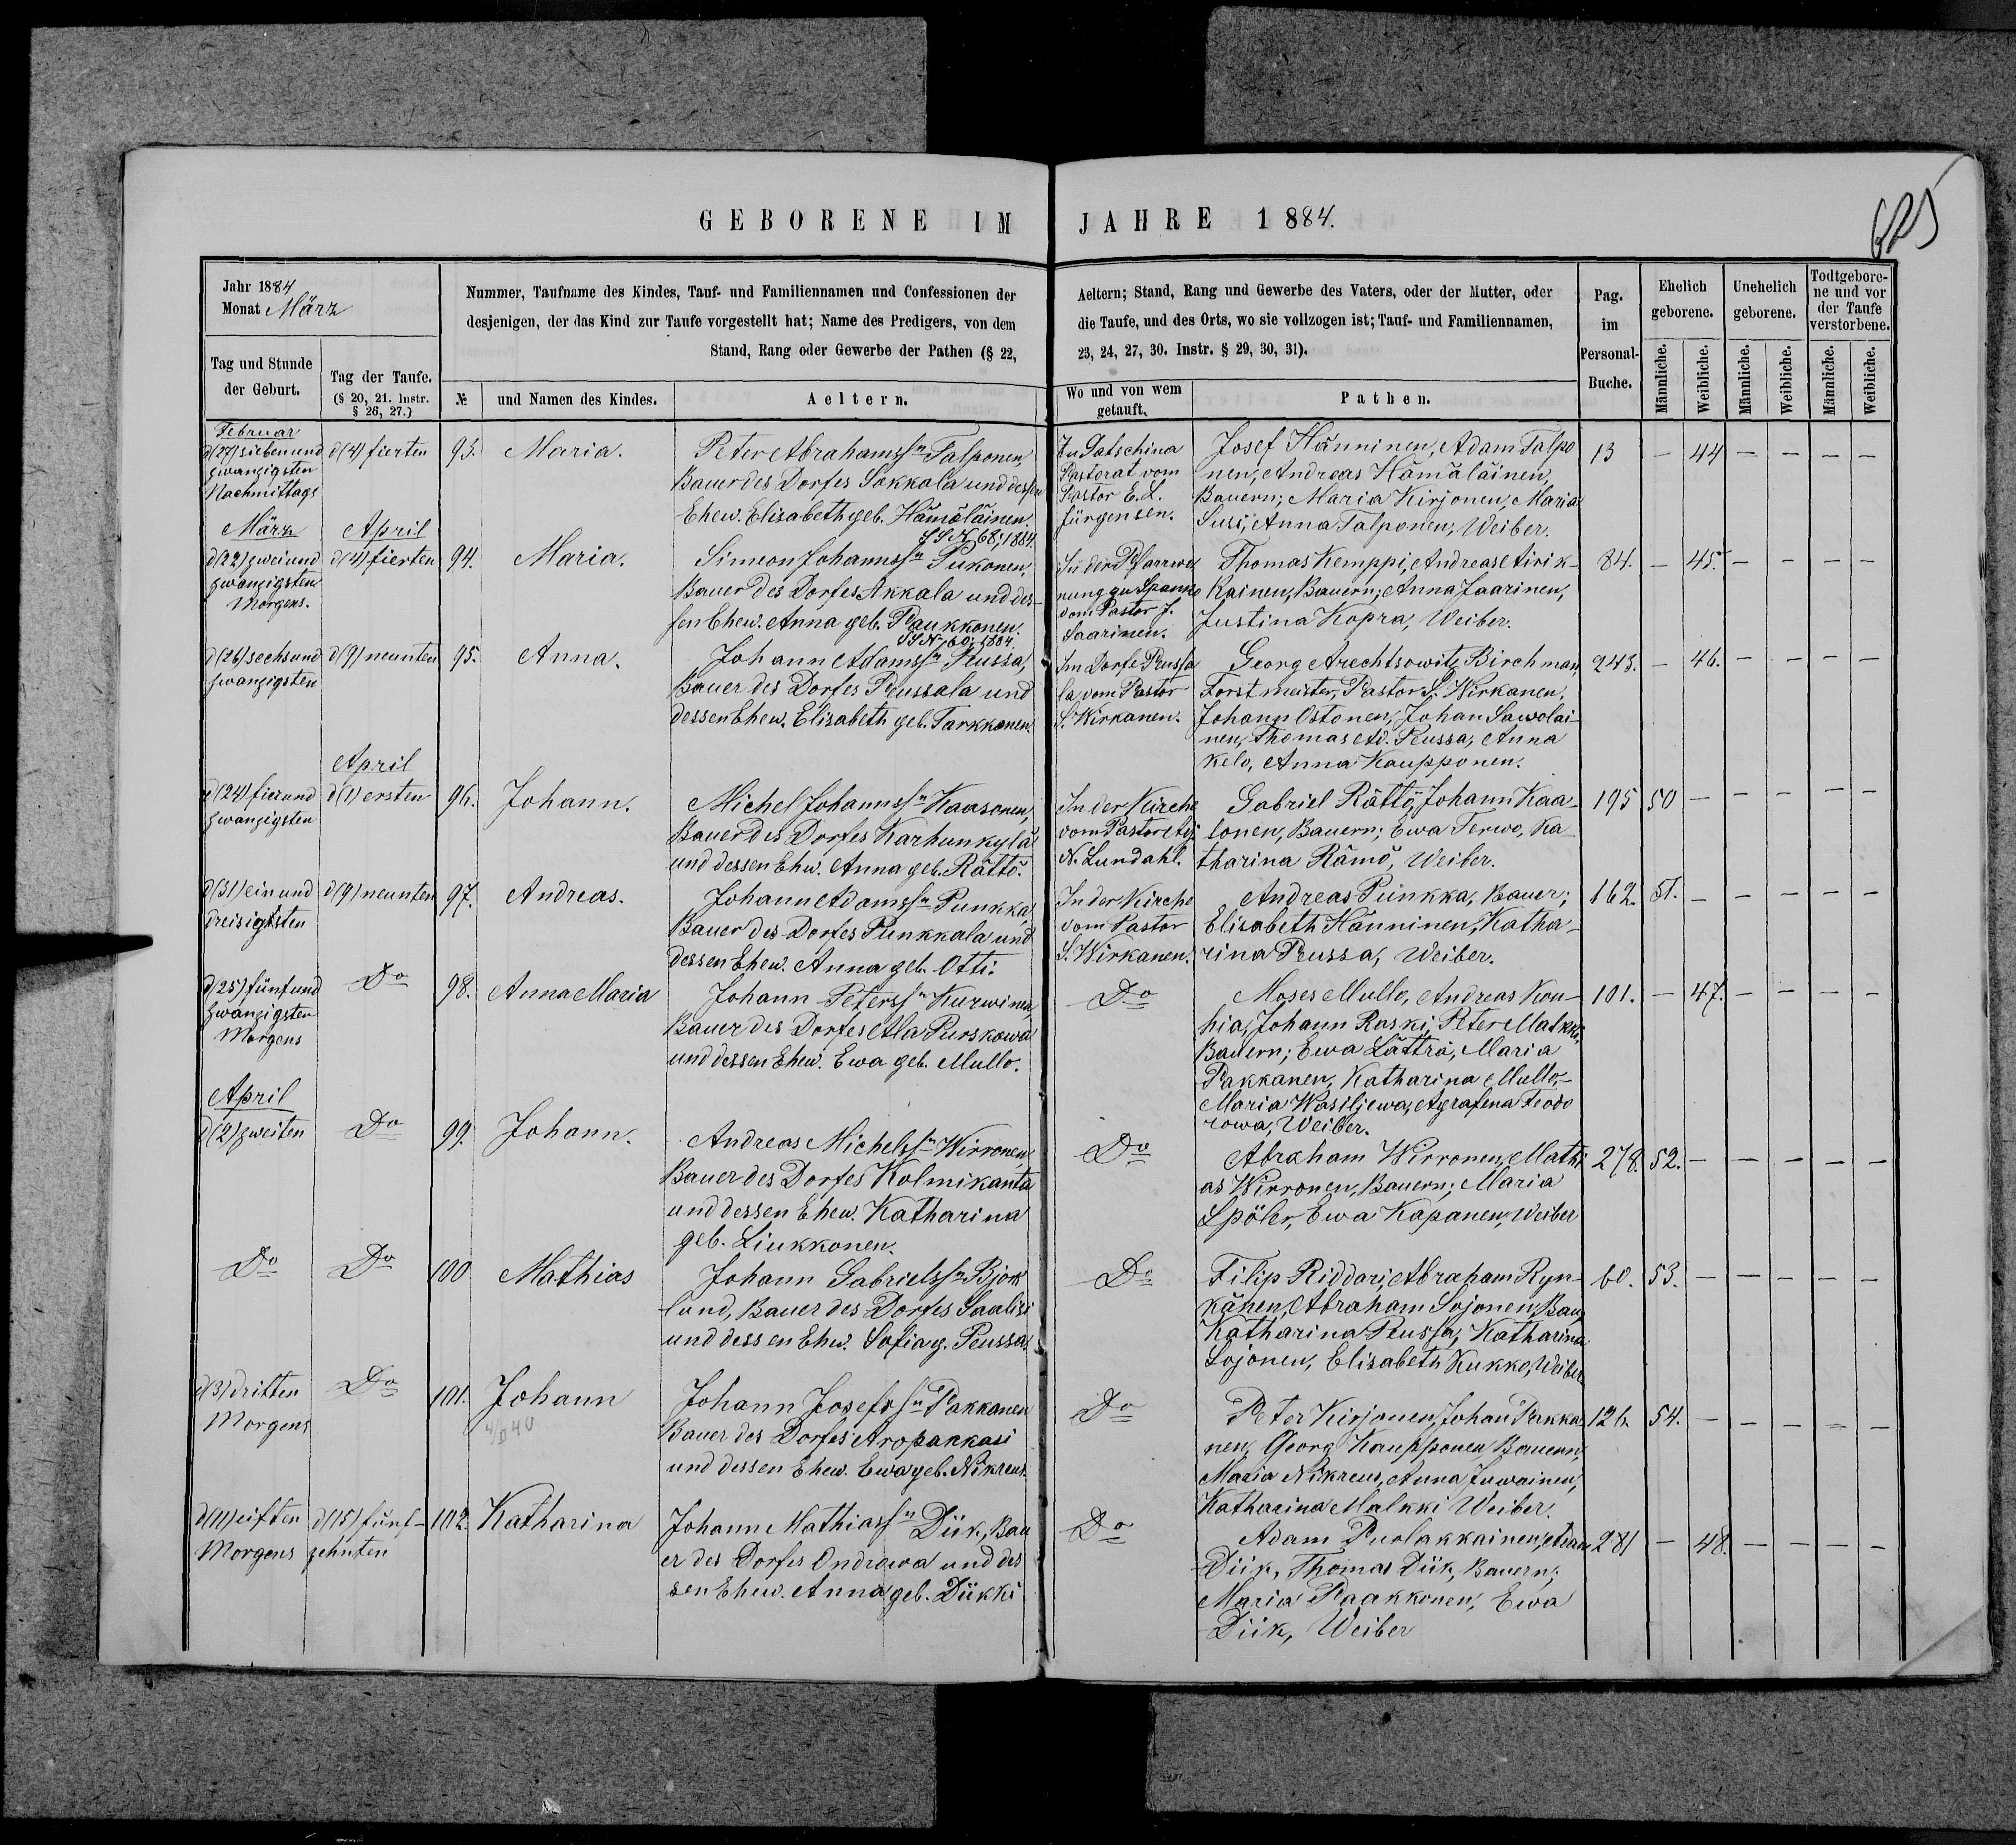 GEBORENE IM JAHRE 1884.
625
Jahr 1884
Monat März
Tag und Stunde
der Geburt.
Tag der Taufe.
(§ 20, 21. Instr.
§ 26, 27.)
Nummer, Taufname des Kindes, Tauf- und Familiennamen und Confessionen der
desjenigen, der das Kind zur Taufe vorgestellt hat; Name des Predigers, von dem
Stand, Rang oder Gewerbe der Pathen (§ 22,
№
und Namen des Kindes.
Aeltern.
Aeltern; Stand, Rang und Gewerbe des Vaters, oder der Mutter, oder
die Taufe, und des Orts, wo sie vollzogen ist; Tauf- und Familiennamen,
23, 24, 27, 30. Instr. § 29, 30, 31).
Wo und von wem
getauft.
Pathen.
Pag.
im
Personal-
Buche.
Ehelich
geborene.
Unehelich
geborene.
Todtgebore-
ne und vor
der Taufe
verstorbene.
Männliche.
Weibliche.
Männliche.
Weibliche.
Männliche.
Weibliche.
Februar
d(27) sieben und
zwanzigsten
Nachmittags
d(4) fierten
93.
Maria.
Peter Abrahamssn Talponen,
Bauer des Dorfes Sokkala und dessen
Ehew. Elisabeth geb. Hämäläinen.
SS N 68; 1884.
In Gatschina
Pastorat vom
Pastor E. L.
Jürgensen.
Josef Hänninen, Adam Talpo
nen, Andreas Hämäläinen,
Bauern; Maria Kirjonen, Maria
Susi, Anna Talponen, Weiber.
13 — 44 — — — —
März
d(22) zwei und
zwanzigsten
Morgens.
April
d(4) fierten
94.
Maria.
Simeon Johannssn Pukonen,
Bauer des Dorfes Akkala und des-
sen Ehew. Anna geb. Paukkonen.
SS N 60; 1884
In der Pfarrwoh
nung zu Spanko
vom Pastor J.
Saarinen.
Thomas Kemppi, Andreas Airik-
kainen, Bauern; Anna Jaarinen,
Justina Kopra, Weiber.
84. — 45. — — — —
d(26) sechs und
zwanzigsten
d(9) neunten
95.
Anna.
Johann Adamssn Russa,
Bauer des Dorfes Peussala und
dessen Ehew. Elisabeth geb. Tarkkonen.
Im Dorfe Peussa
la vom Pastor
S. Wirkanen.
Georg Arechtsowitz Birchman,
Forstmeister, Pastor S. Wirkanen,
Johann Ostonen, Johan Sawolai-
nen, Thomas Ad. Peussa, Anna
Kelo, Anna Kaupponen.
243. — 46. — — — —
d(24) fier und
zwanzigsten
April
d(1) ersten
96.
Johann.
Michel Johannssn Kaasonen,
Bauer des Dorfes Karhunkylä
und dessen Ehw. Anna geb. Rättö.
In der Kirche
vom Pastor Adj.
N. Lundahl.
Gabriel Rättö, Johann Kaa-
lonen, Bauern; Ewa Terwo, Ka-
tharina Rämö, Weiber.
195 50 — — — — —
d(31) ein und
dreisigsten
d(9) neunten
97.
Andreas.
Johann Adamssn Punkka,
Bauer des Dorfes Punkkala und
dessen Ehew. Anna geb. Otti.
In der Kirche
vom Pastor
S. Wirkanen.
Andreas Punkka, Bauer;
Elisabeth Hänninen, Katha-
rina Peussa, Weiber.
162. 51. — — — — —
d(25) fünf und
zwanzigsten
Morgens
Do
98.
Anna Maria
Johann Peterssn Kurwinen,
Bauer des Dorfes Ala Purskowa
und dessen Ehew. Ewa geb. Mullo.
Do
Moses Mullo, Andreas Kou-
hia, Johann Raski, Peter Malkki,
Bauern; Ewa Lätträ, Maria
Pakkanen, Katharina Mullo,
Maria Wasiljewa, Agrafena Feodo
rowa, Weiber.
101. — 47. — — — —
April
d(2) zweiten
Do
99.
Johann.
Andreas Michelssn Wirronen
Bauer des Dorfes Kolmikanta
und dessen Ehew. Katharina
geb. Liukkonen.
Do
Abraham Wirronen, Mathi
as Wirronen, Bauern; Maria
Spöler, Ewa Kapanen, Weiber
278. 52. — — — — —
Do
Do
100
Mathias
Johann Gabrielssn Bjök
lund, Bauer des Dorfes Saalisi
und dessen Ehw. Sofia g. Peussa.
Do
Filip Riddari, Abraham Ryn-
känen, Abraham Sojonen, Bau
Katharina Peussa, Katharina
Sojonen, Elisabeth Kukko, Weiber
60. 53. — — — — —
d(3) dritten
Morgens
Do
101.
Johann
Johann Josefssn Pakkanen
Bauer des Dorfes Aropakkasi
und dessen Ehew. Ewa geb. Nikreus.
Do
Peter Kirjonen, Johan Pakka
nen, Georg Kaupponen Bauern;
Maria Nikreus, Anna Juwainen,
Katharina Malkki Weiber.
126. 54. — — — — —
d(11) elften
Morgens
d(15) fünf-
zehnten
102.
Katharina
Johann Mathiassn Diik, Bau
er des Dorfes Ondrowa und des
sen Ehew. Anna geb. Diikki
Do
Adam Puolakkainen, Adam
Diik, Thomas Diik, Bauern;
Maria Raakkonen, Ewa
Diik, Weiber
281 — 48. — — — —